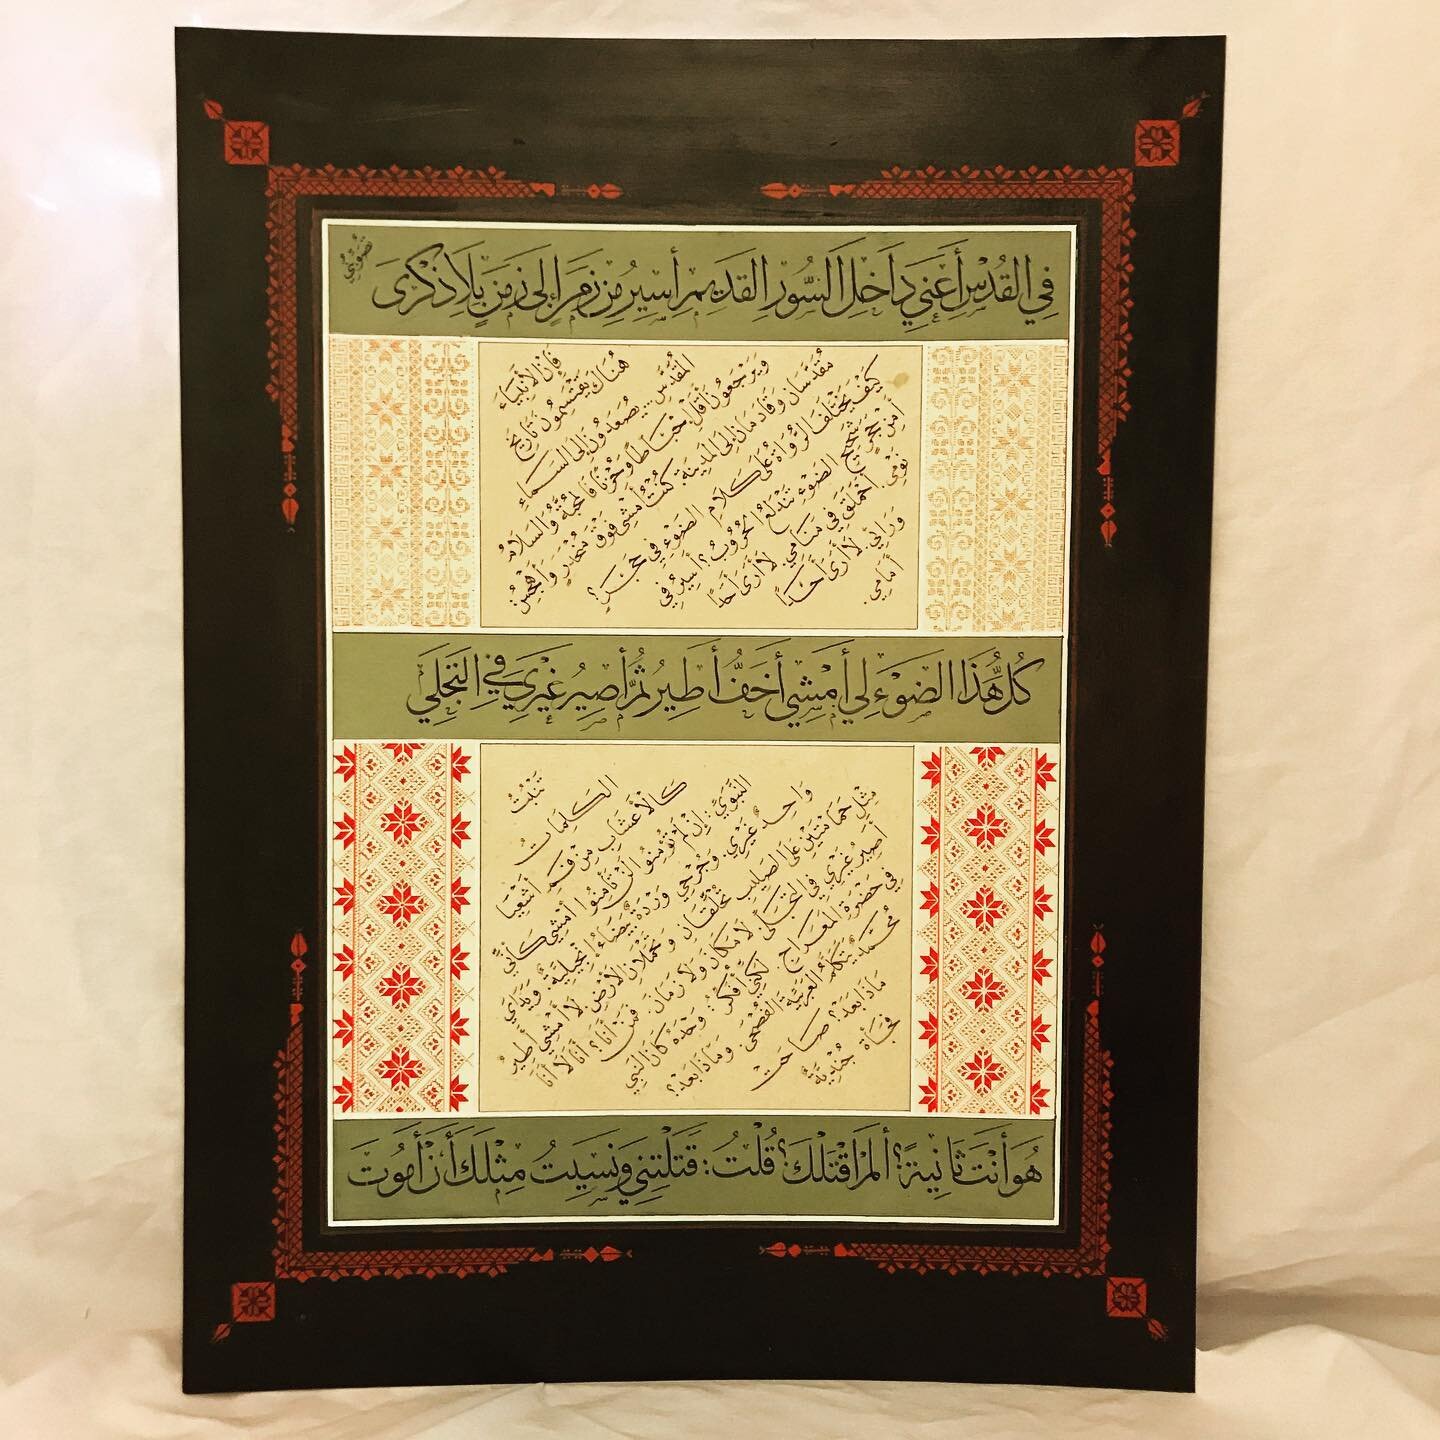 فِي القُدْسِ أَعْنِي دَاخِلَ السُّورِ القَدِيمِ أَسِيرُ مِنْ زَمَنٍ إِلَى زَمَنٍ بِلَا ذِكْرَى
تُصَوِّبُنِي
فَإِنَّ الأَنْبِيَاءَ
هُنَاكَ يَقْتَسِمُونَ تَارِيخَ
المُقَدَّسِ... يَصْعَدُونَ إِلَى السَّمَاءِ
وَيَرْجَعُونَ أَقَلَّ إِحْبَاطاً وَحُزْناً فَالمَحَبَّةُ وَالسَّلَامُ
مُقَدَّسَانِ وَقَادِمَانِ إِلَى المَدِينَةِ. كُنْتُ أَمْشِي فَوْقَ مُنْحَدَرٍ وَأَهْجِسُ:
كَيْفَ يَخْتَلِفُ الرُّوَاةُ عَلَى كَلَامِ الضَّوْءِ فِي حَجَرٍ؟
أَمِنْ حَجَرٍ شَحِيحِ الضَّوْءِ تَنْدَلِعُ الحُرُوبُ؟ أَسِيرُ فِي
نَوْمِي. أُحَمْلِقُ فِي مَنَامِي. لَا أَرَى أَحَداً
وَرَائِي. لَا أَرَى أَحَداً
أَمَامِي.
كُلُّ هَذَا الضَّوْءِ لِي أَمْشِي أَخَفُّ أَطِيرُ ثُمَّ أَصِيرُ غَيْرِي فِي التَّجَلِّي
تَنْبُتُ
الكَلِمَاتُ
كَالأَعْشَابِ مِنْ فَمِ أَشَعْيَا
النَّبَوِيِّ: إِنْ لَمْ تُؤْمِنُوا لَنْ تَأْمَنُوا أَمْشِي كَأَنِّي
وَاحِدٌ غَيْرِي. وَجُرْحِي وَرْدَةٌ بَيْضَاءُ إِنْجِيلِيَّةٌ. وَيَدَايَ
مِثْلَ حَمَامَتَيْنِ عَلَى الصَّلِيبِ تُحَلِّقَانِ وَتَحْمِلَانِ الأَرْضَ. لَا أَمْشِي أَطِيرُ
أَصِيرُ غَيْرِي فِي التَّجَلِّي لَا مَكَانَ وَلَا زَمَانَ. فَمَنْ أَنَا؟ أَنَا لَا أَنَا
فِي حَضْرَةِ المِعْرَاجِ. لَكِنِّي أُفَكِّرُ: وَحْدَهُ كَانَ النَّبِيُّ
مُحَمَّدٌ يَتَكَلَّمُ العَرَبِيَّةَ الفُصْحَى. وَمَاذَا بَعْدُ؟
مَاذَا بَعْدُ؟ صَاحَتْ
فَجْأَةً جُنْدِيَّةٌ
هُوَ أَنْتَ ثَانِيَةً؟ أَلَمْ أَقْتُلْكَ؟ قُلْتُ: قَتَلْتِنِي وَنَسِيتُ مِثْلَكَ أَنْ أَمُوتَ